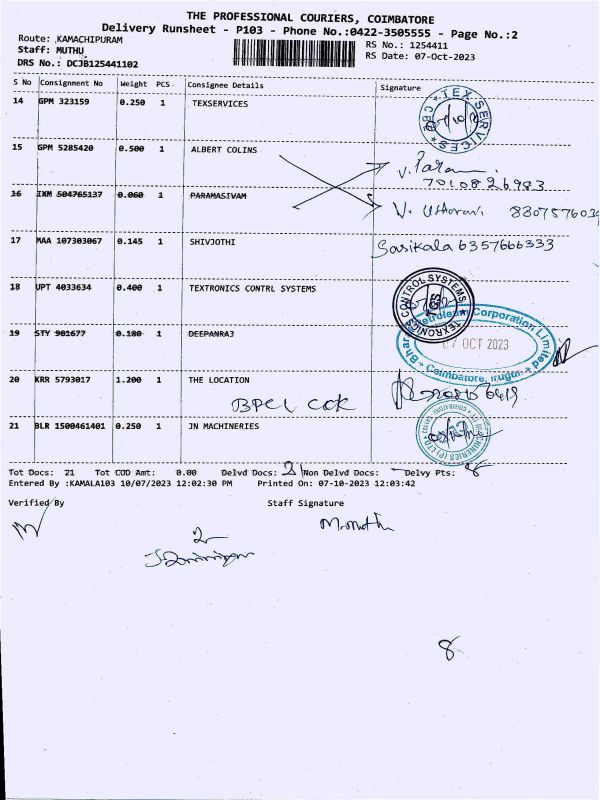 THE PROFESSIONAL COURIERS, COIMBATORE
Delivery Runsheet - P103 - Phone No.:0422-3505555 - Page No.:2
Route: ,KAMACHIPURAM
RS No.: 1254411
Staff: MUTHU
RS Date: 07-Oct-2023
DRS No.: DCJB125441102
S No Consignment No Weight PCS Consignee Details Signature
14 GPM 323159 0.250 1 TEXSERVICES
TEX-SERVICES CBE
15 GPM 5285420 0.500 1 ALBERT COLINS
V. Param
7010826983
16 IXM 504765137 0.060 1 PARAMASIVAM
17 MAA 107303067 0.145 1 SHIVJOTHI Sasikala 6357666333
18 UPT 4033634 0.400 1 TEXTRONICS CONTRL SYSTEMS
TEXRONICS CONTROL SYSTEMS
TCS
19 STY 901677 0.180 1 DEEPANRAJ
Petroleum Corporation Limited
07 OCT 2023
Coimbatore, Irugur
20 KRR 5793017 1.200 1 THE LOCATION
BPCL
21 BLR 1500461401 0.250 1 JN MACHINERIES
Tot Docs: 21 Tot COD Amt: 0.00 Delvd Docs: 21 Non Delvd Docs: Delvy Pts: 8
Entered By :KAMALA103 10/07/2023 12:02:30 PM Printed On: 07-10-2023 12:03:42
Verified By Staff Signature
M.muthu
8